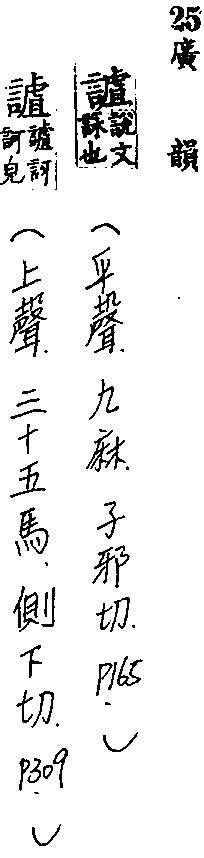 25廣韻
謯說文詠也(平聲.九麻.子邪切.P165.)
謯謯訶訶皃(上聲.三十五馬.側下切.P309.)